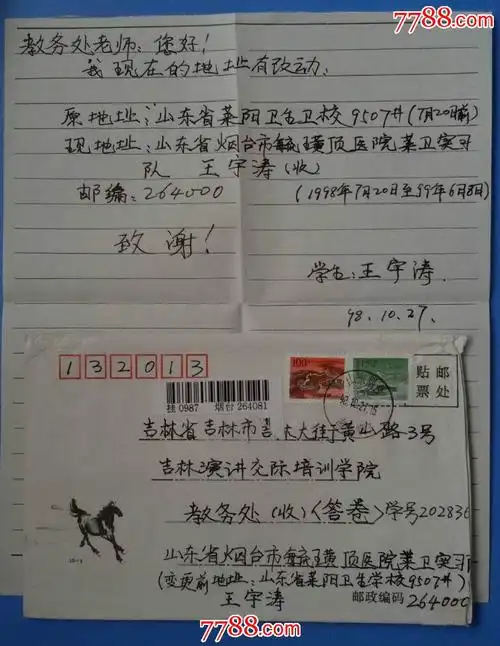 7788.com
教务处老师:您好!
我现在的地址有改动:
原地址:山东省莱阳卫生卫校9507#(7月20日前)
现地址:山东省烟台市毓璜顶医院莱卫实习
队 王宇涛(收)
邮编:264000
(1998年7月20日至99年6月8日)
致谢!
学生:王宇涛.
98.10.27.
132013
100
贴邮票处
挂0987 烟台264081
98.10.27.15
吉林省吉林市吉 东大街于黄山路3号
吉林演讲交际培训学院
教务处(收)〈答卷〉学号202836
山东省烟台市毓璜顶医院莱卫实习
(变更前地址:山东省莱阳卫生学校9507#)
王宇涛 邮政编码264000
7788.com